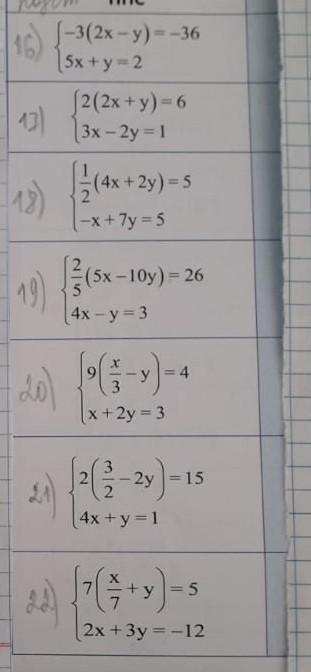 16) { -3(2x – y) = -36
5x + y = 2
17) { 2(2x + y) = 6
3x – 2y = 1
18) { 1/2 (4x + 2y) = 5
–x + 7y = 5
19) { 2/5 (5x – 10y) = 26
4x – y = 3
20) { 9(x/3 – y) = 4
x + 2y = 3
21) { 2(3/2 – 2y) = 15
4x + y = 1
22) { 7(x/7 + y) = 5
2x + 3y = –12